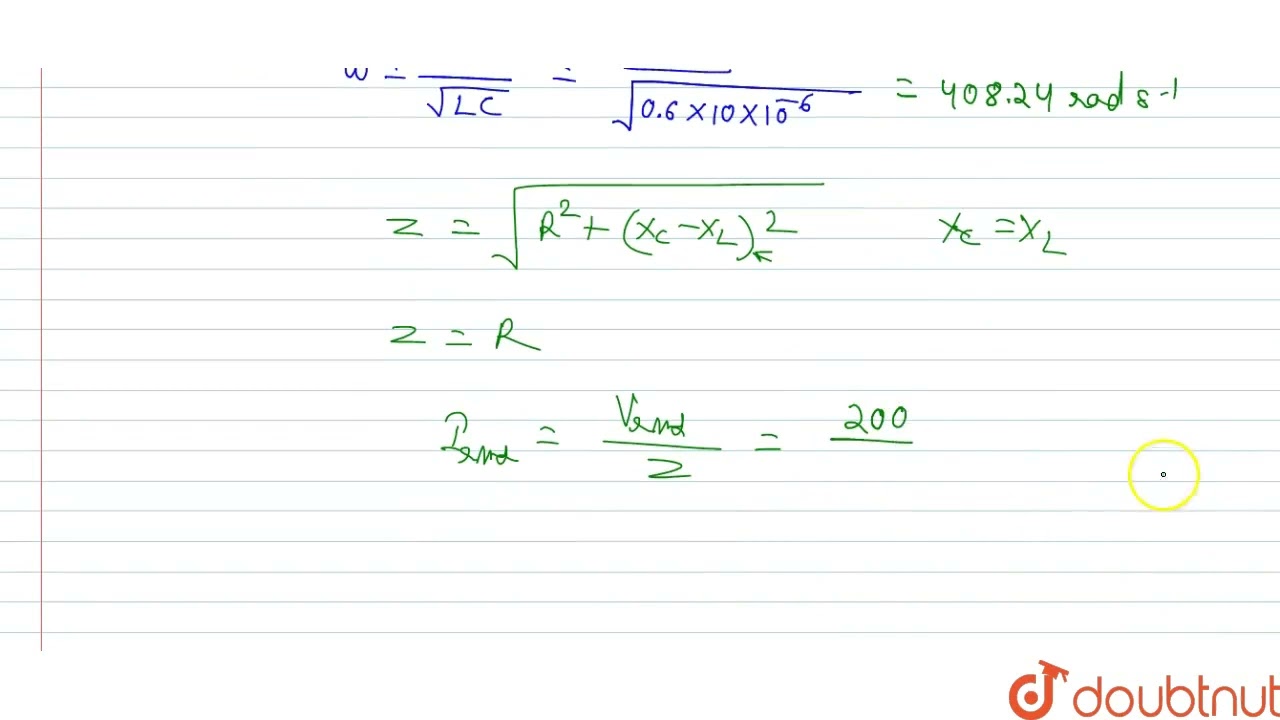 ω = 1/√LC = 1/√0.6×10×10⁻⁶ = 408.24 rad s⁻¹
Z = √R² + (Xc − XL)² Xc = XL
Z = R
Irms = Vrms/Z = 200/
doubtnut